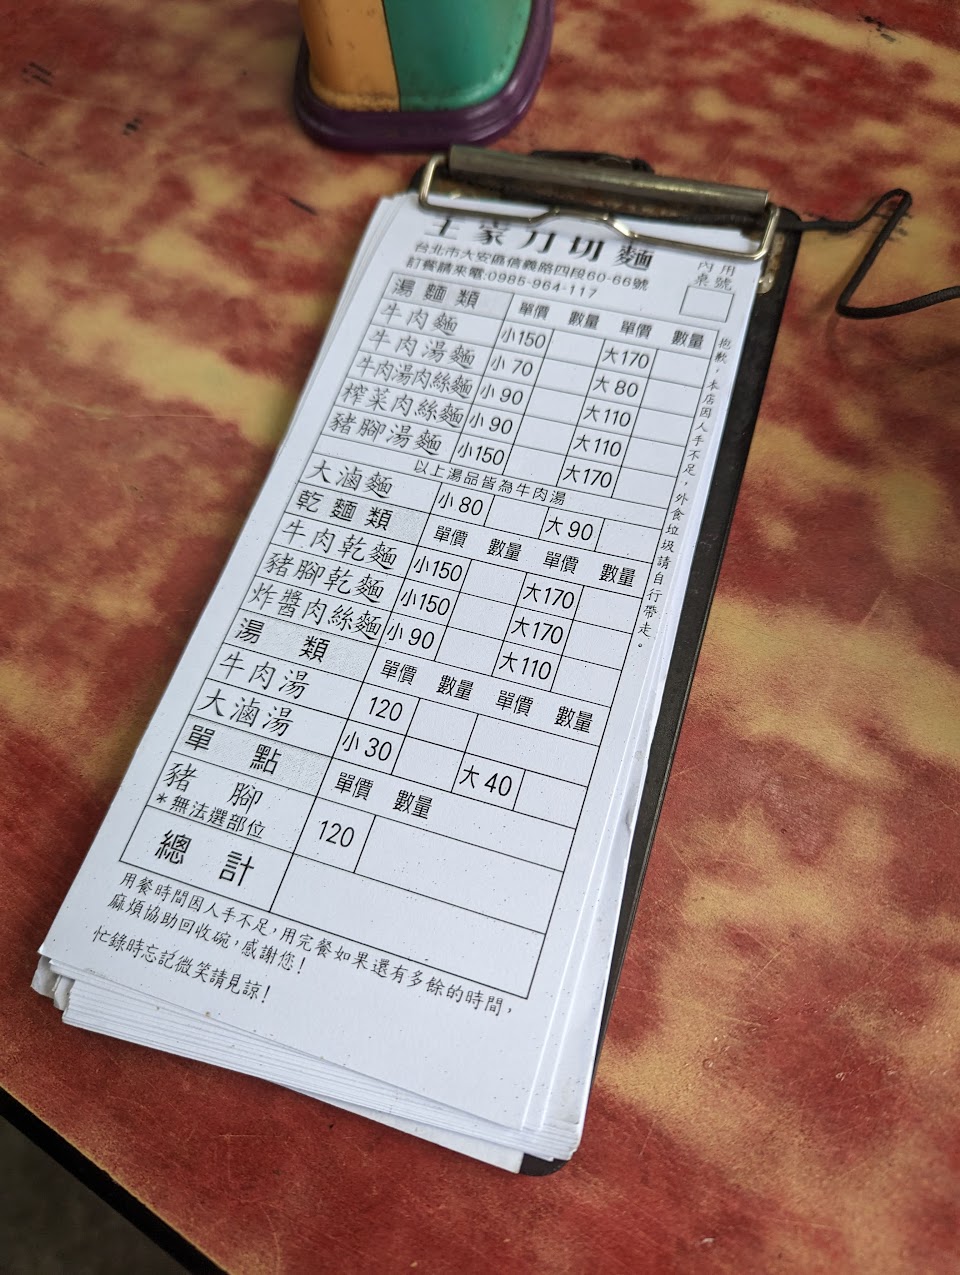 王家刀切麵
台北市大安區信義路四段60-66號
訂餐請來電:0985-964-117
內用
桌號
湯麵類 單價 數量 單價 數量
牛肉麵 小150 大170
牛肉湯麵 小70 大80
牛肉湯肉絲麵 小90 大110
榨菜肉絲麵 小90 大110
豬腳湯麵 小150 大170
以上湯品皆為牛肉湯
大滷麵 小80 大90
乾麵類 單價 數量 單價 數量
牛肉乾麵 小150 大170
豬腳乾麵 小150 大170
炸醬肉絲麵 小90 大110
湯類 單價 數量 單價 數量
牛肉湯 120
大滷湯 小30 大40
單點 單價 數量
豬腳 120
*無法選部位
總計
用餐時間因人手不足,用完餐如果還有多餘的時間,
麻煩協助回收碗,感謝您!
忙錄時忘記微笑請見諒!
抱歉,本店因人手不足,外食垃圾請自行帶走。